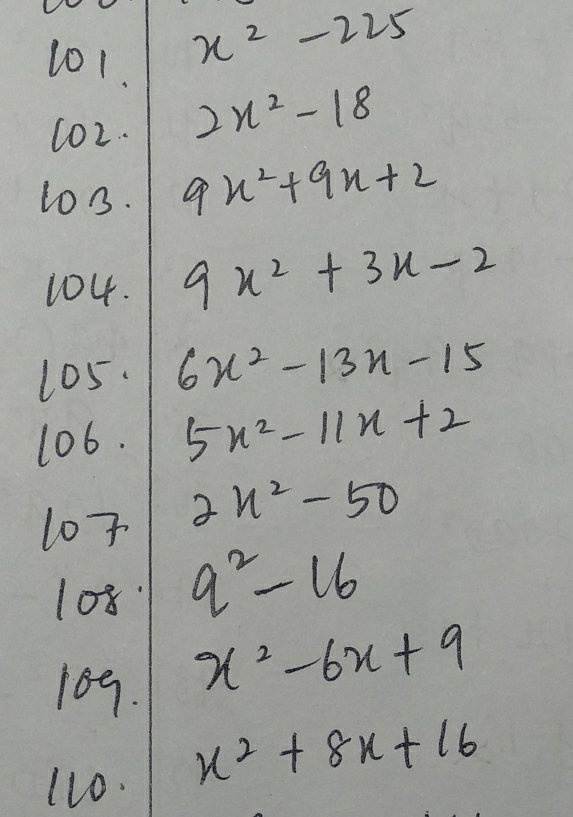 101. x² - 225
102. 2x² - 18
103. 9x² + 9x + 2
104. 9x² + 3x - 2
105. 6x² - 13x - 15
106. 5x² - 11x + 2
107 2x² - 50
108. q² - 16
109. x² - 6x + 9
110. x² + 8x + 16